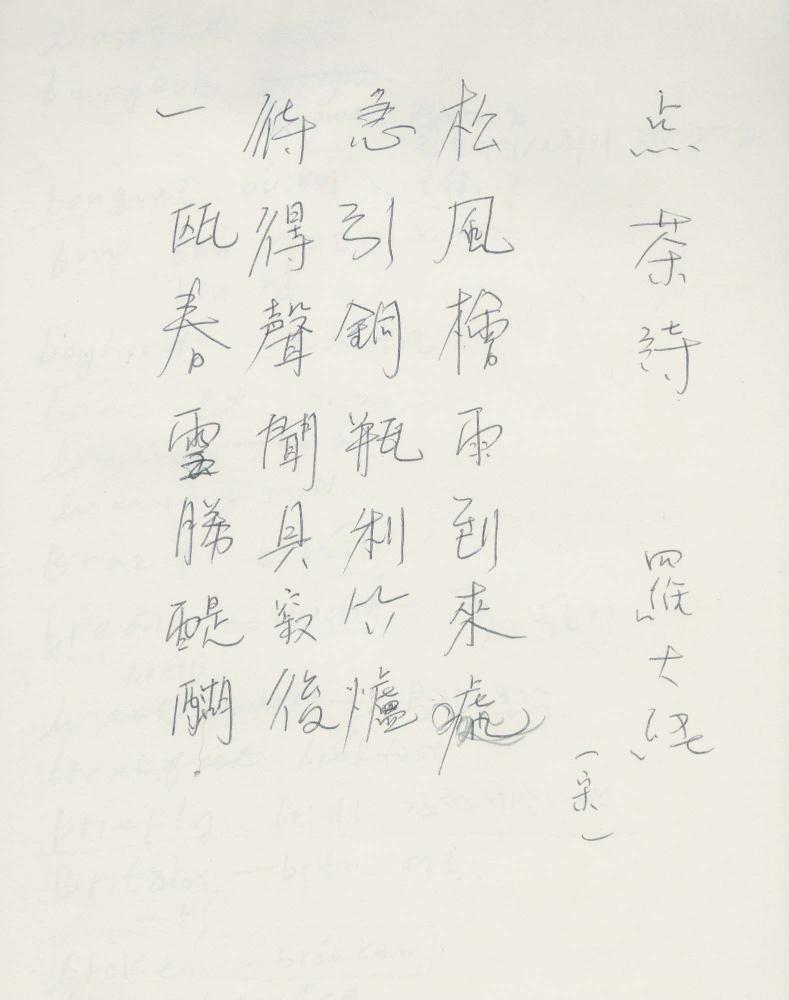 点茶詩 羅大經
(宋)
松風檜雨到來處
急引銅瓶利竹爐
待得聲聞具寂後
一甌春雪勝醍醐.